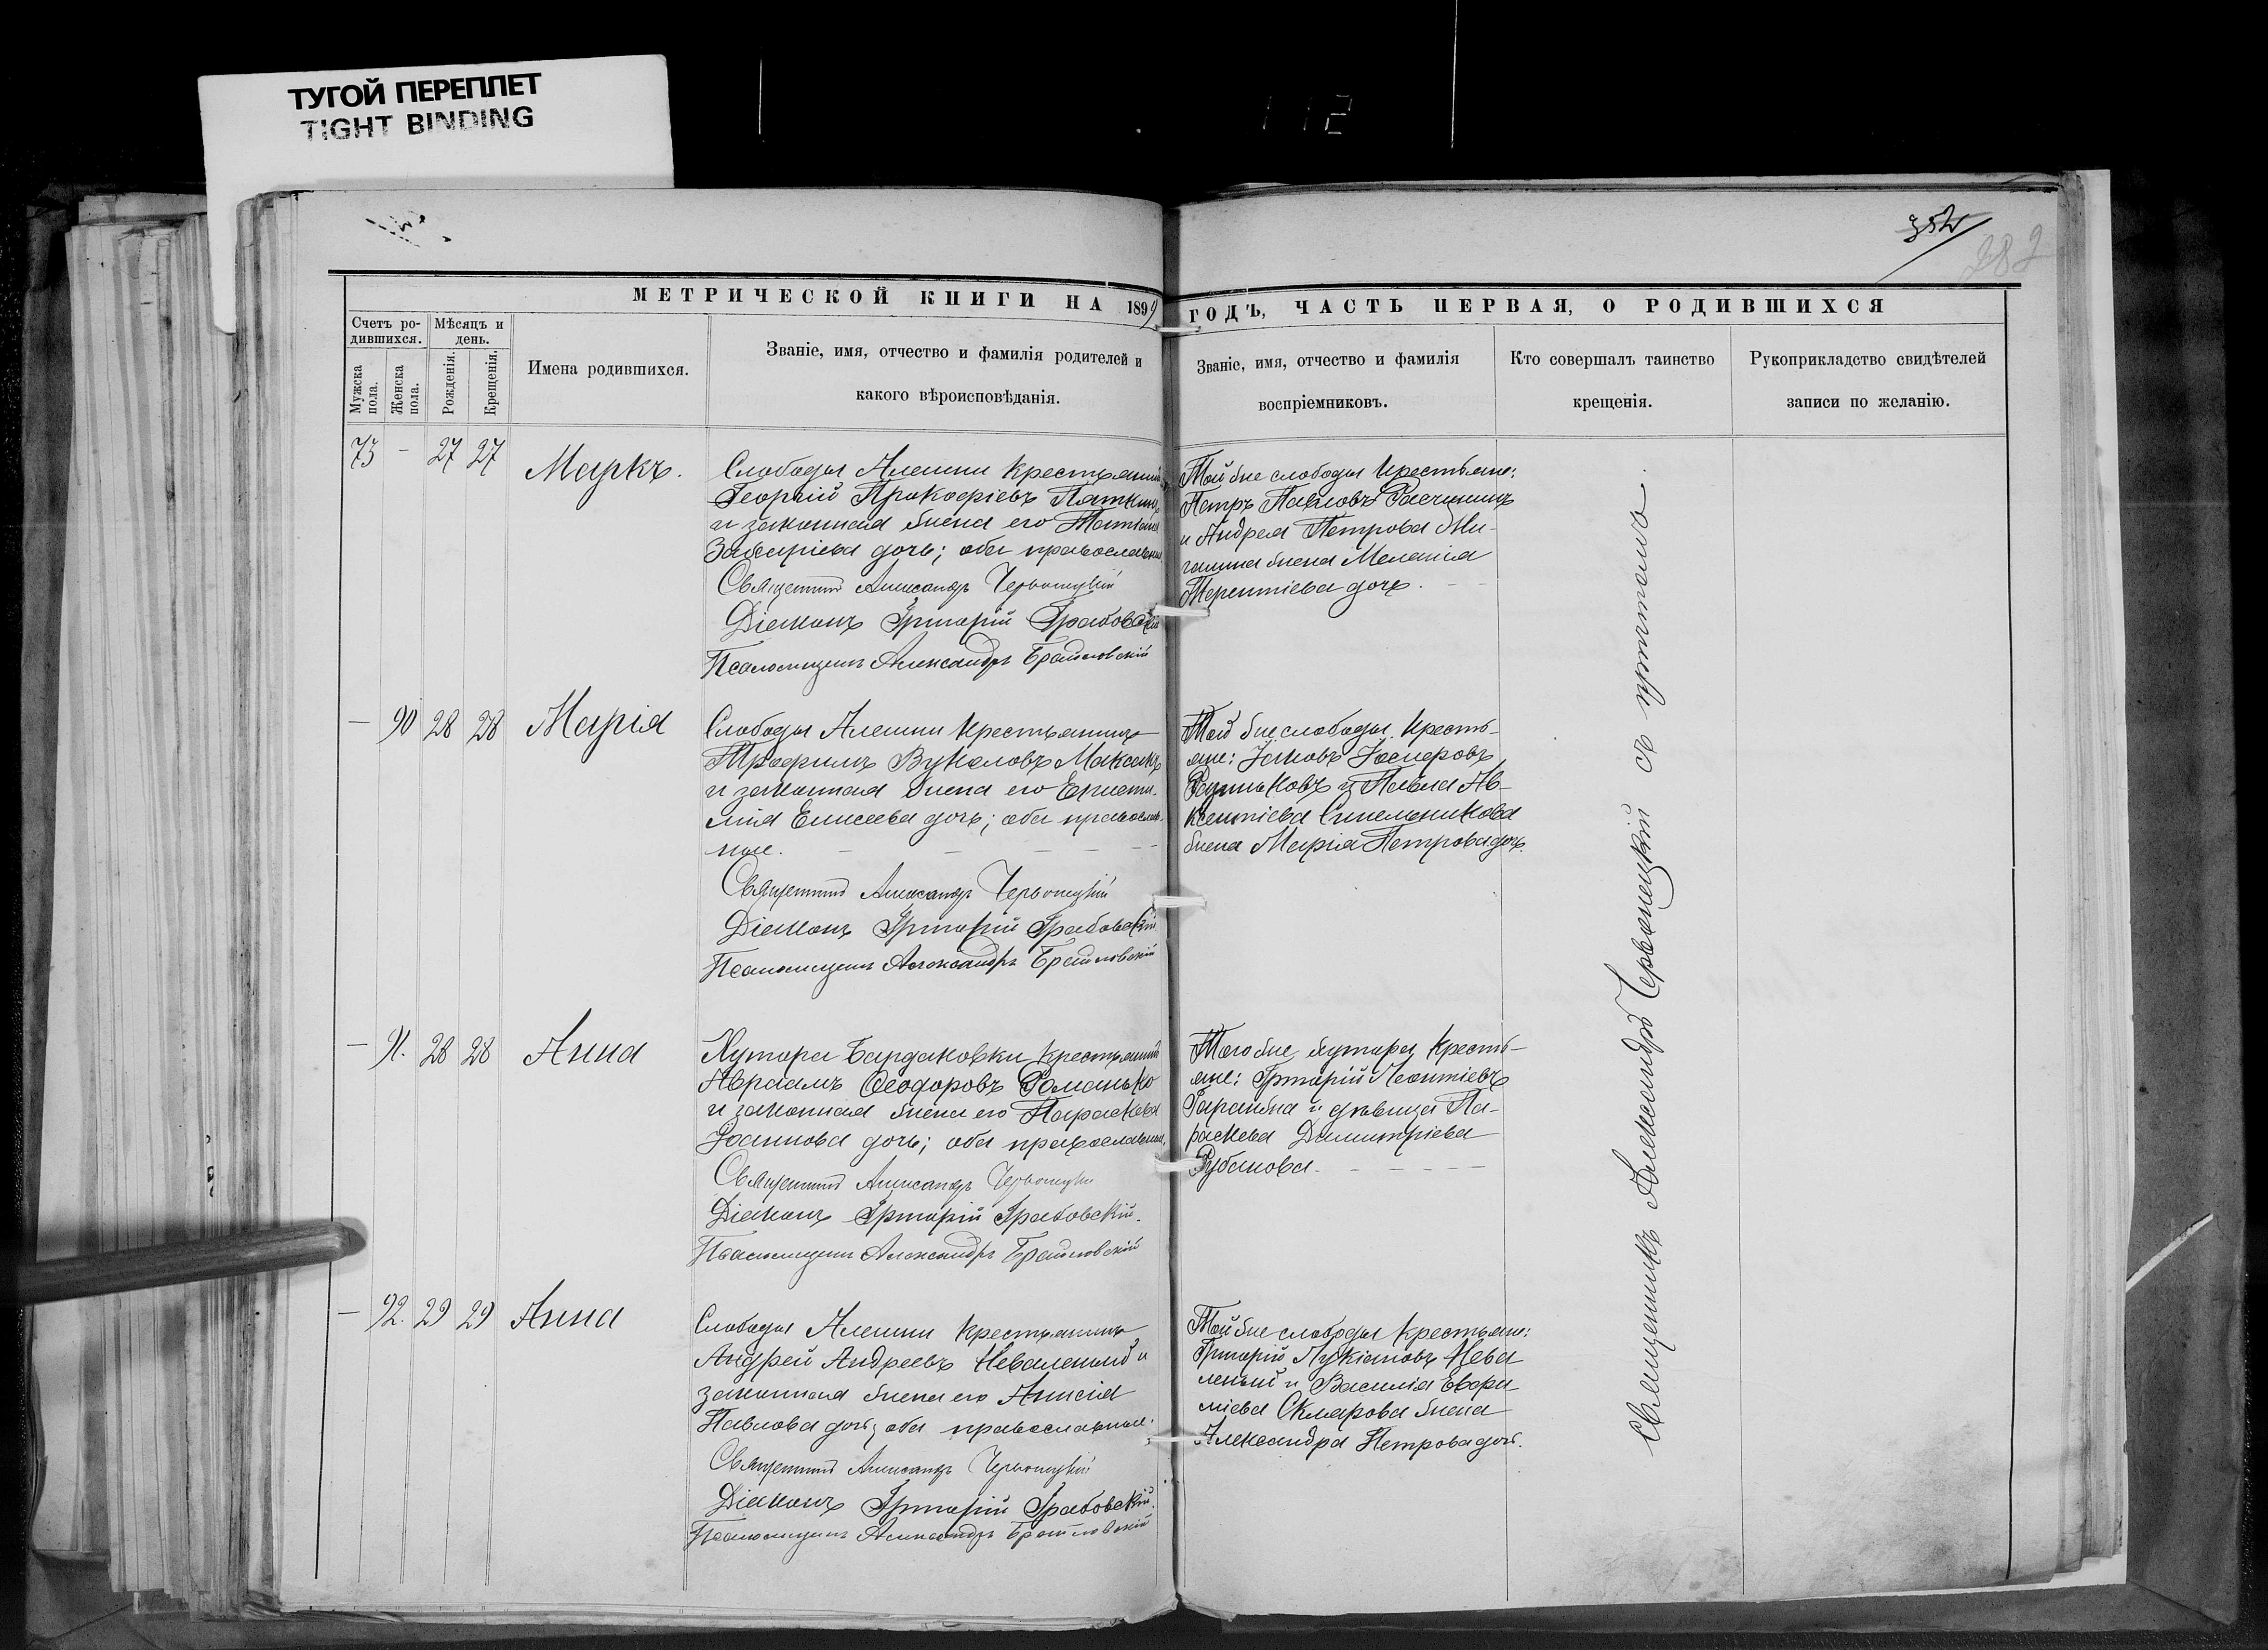 ТУГОЙ ПЕРЕПЛЕТ
TIGHT BINDING
112
352
282
МЕТРИЧЕСКОЙ КНИГИ НА 1899
ГОДЪ, ЧАСТЬ ПЕРВАЯ, О РОДИВШИХСЯ
Счетъ ро-
дившихся.
Мѣсяцъ и
день.
Мужска
пола.
Женска
пола.
Рожденія.
Крещенія.
Имена родившихся.
Званіе, имя, отчество и фамилія родителей и
какого вѣроисповѣданія.
Званіе, имя, отчество и фамилія
воспріемниковъ.
Кто совершалъ таинство
крещенія.
Рукоприкладство свидѣтелей
записи по желанію.
73 - 27 27 Маркъ.
Слободы Алешни крестьянинъ
Георгій Прокофіевъ
и законная жена его
дочь; оба православные
Священникъ Александръ Червонецкій
Діаконъ Григорій Грабовскій
Псаломщикъ Александръ Браиловскій
Той же слободы крестьяне:
Петръ Павловъ
и Андрея Петрова Ми-
жена Меланія
Терентіева дочь.
- 90 28 28 Марія
Слободы Алешни крестьянинъ
Трофимъ Вуколовъ Максакъ
и законная жена его Еписти-
мія Елисеева дочь; оба православ-
ные.
Священникъ Александръ Червонецкій
Діаконъ Григорій Грабовскій
Псаломщикъ Александръ Браиловскій
Той же слободы кресть-
яне: Іаковъ
и Павла Ав-
ксентіева Синельникова
жена Марія Петрова дочь.
- 91. 28 28 Анна
Хутора Бардаковки крестьянинъ
Авраамъ Ѳеодоровъ Романько
и законная жена его Параскева
Іоаннова дочь; оба православные.
Священникъ Александръ Червонецкій
Діаконъ Григорій Грабовскій.
Псаломщикъ Александръ Браиловскій
Того же хутора кресть-
яне: Григорій Леонтіевъ
Гаранжа и дѣвица Па-
раскева Димитріева
Рубанова.
- 92. 29 29 Анна
Слободы Алешни крестьянинъ
Андрей Андреевъ Неваленый и
законная жена его Анисія
Павлова дочь; оба православные.
Священникъ Александръ Червонецкій
Діаконъ Григорій Грабовскій.
Псаломщикъ Александръ Браиловскій
Той же слободы крестьяне:
Григорій Лукіановъ Нева
леный и Василія Евфи-
міева Склярова жена
Александра Петрова дочь.
Священникъ Александръ Червонецкій съ причтомъ.